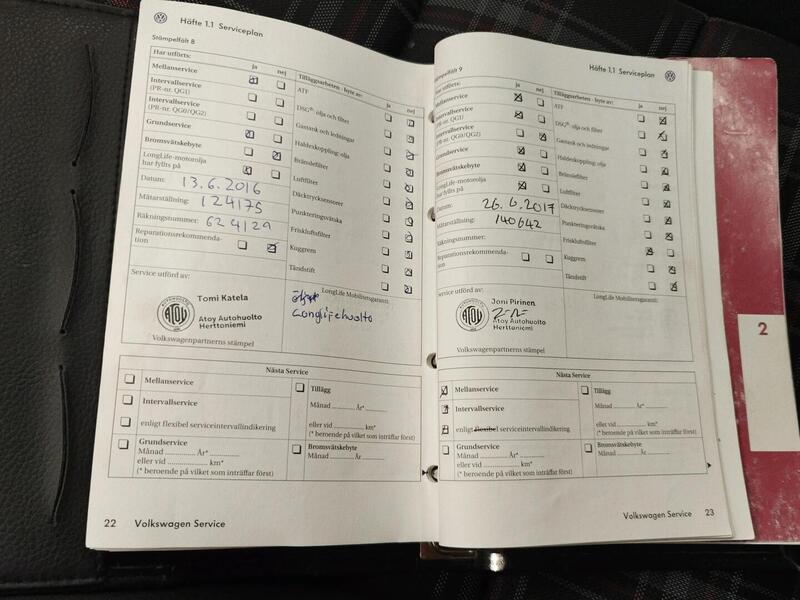 Häfte 1.1 Serviceplan
Stämpelfält 8
Har utförts:
ja
nej
Mellanservice
Intervallservice
(PR-nr. QG1)
Intervallservice
(PR-nr. QG0/QG2)
Grundservice
Bromsvätskebyte
LongLife-motorolja
har fyllts på
Datum: 13.6.2016
Mätarställning: 124175
Räkningsnummer: 624129
Reparationsrekommenda-
tion
Tilläggsarbeten - byte av:
ja
nej
ATF
DSG®: olja och filter
Gastank och ledningar
Haldexkoppling: olja
Bränslefilter
Luftfilter
Däcktrycksensorer
Punkteringsvätska
Friskluftsfilter
Kuggrem
Tändstift
Service utförd av:
Tomi Katela
ATOY
Atoy Autohuolto
Herttoniemi
Volkswagenpartnerns stämpel
LongLife Mobilitetsgaranti:
Longlifehuolto
Nästa Service
Mellanservice
Intervallservice
enligt flexibel serviceintervallindikering
Grundservice
Månad ............ År*............
eller vid ............ km*
(* beroende på vilket som inträffar först)
Tillägg
Månad ............ År*............
eller vid ............ km*
(* beroende på vilket som inträffar först)
Bromsvätskebyte
Månad ............ År*............
22 Volkswagen Service
Häfte 1.1 Serviceplan
Stämpelfält 9
Har utförts:
ja
nej
Mellanservice
Intervallservice
(PR-nr. QG1)
Intervallservice
(PR-nr. QG0/QG2)
Grundservice
Bromsvätskebyte
LongLife-motorolja
har fyllts på
Datum: 26.6.2017
Mätarställning: 140642
Räkningsnummer:
Reparationsrekommenda-
tion
Tilläggsarbeten - byte av:
ja
nej
ATF
DSG®: olja och filter
Gastank och ledningar
Haldexkoppling: olja
Bränslefilter
Luftfilter
Däcktrycksensorer
Punkteringsvätska
Friskluftsfilter
Kuggrem
Tändstift
Service utförd av:
Joni Pirinen
ATOY
Atoy Autohuolto
Herttoniemi
Volkswagenpartnerns stämpel
LongLife Mobilitetsgaranti:
Nästa Service
Mellanservice
Intervallservice
enligt flexibel serviceintervallindikering
Grundservice
Månad ............ År*............
eller vid ............ km*
(* beroende på vilket som inträffar först)
Tillägg
Månad ............ År*............
eller vid ............ km*
(* beroende på vilket som inträffar först)
Bromsvätskebyte
Månad ............ År*............
Volkswagen Service 23
2